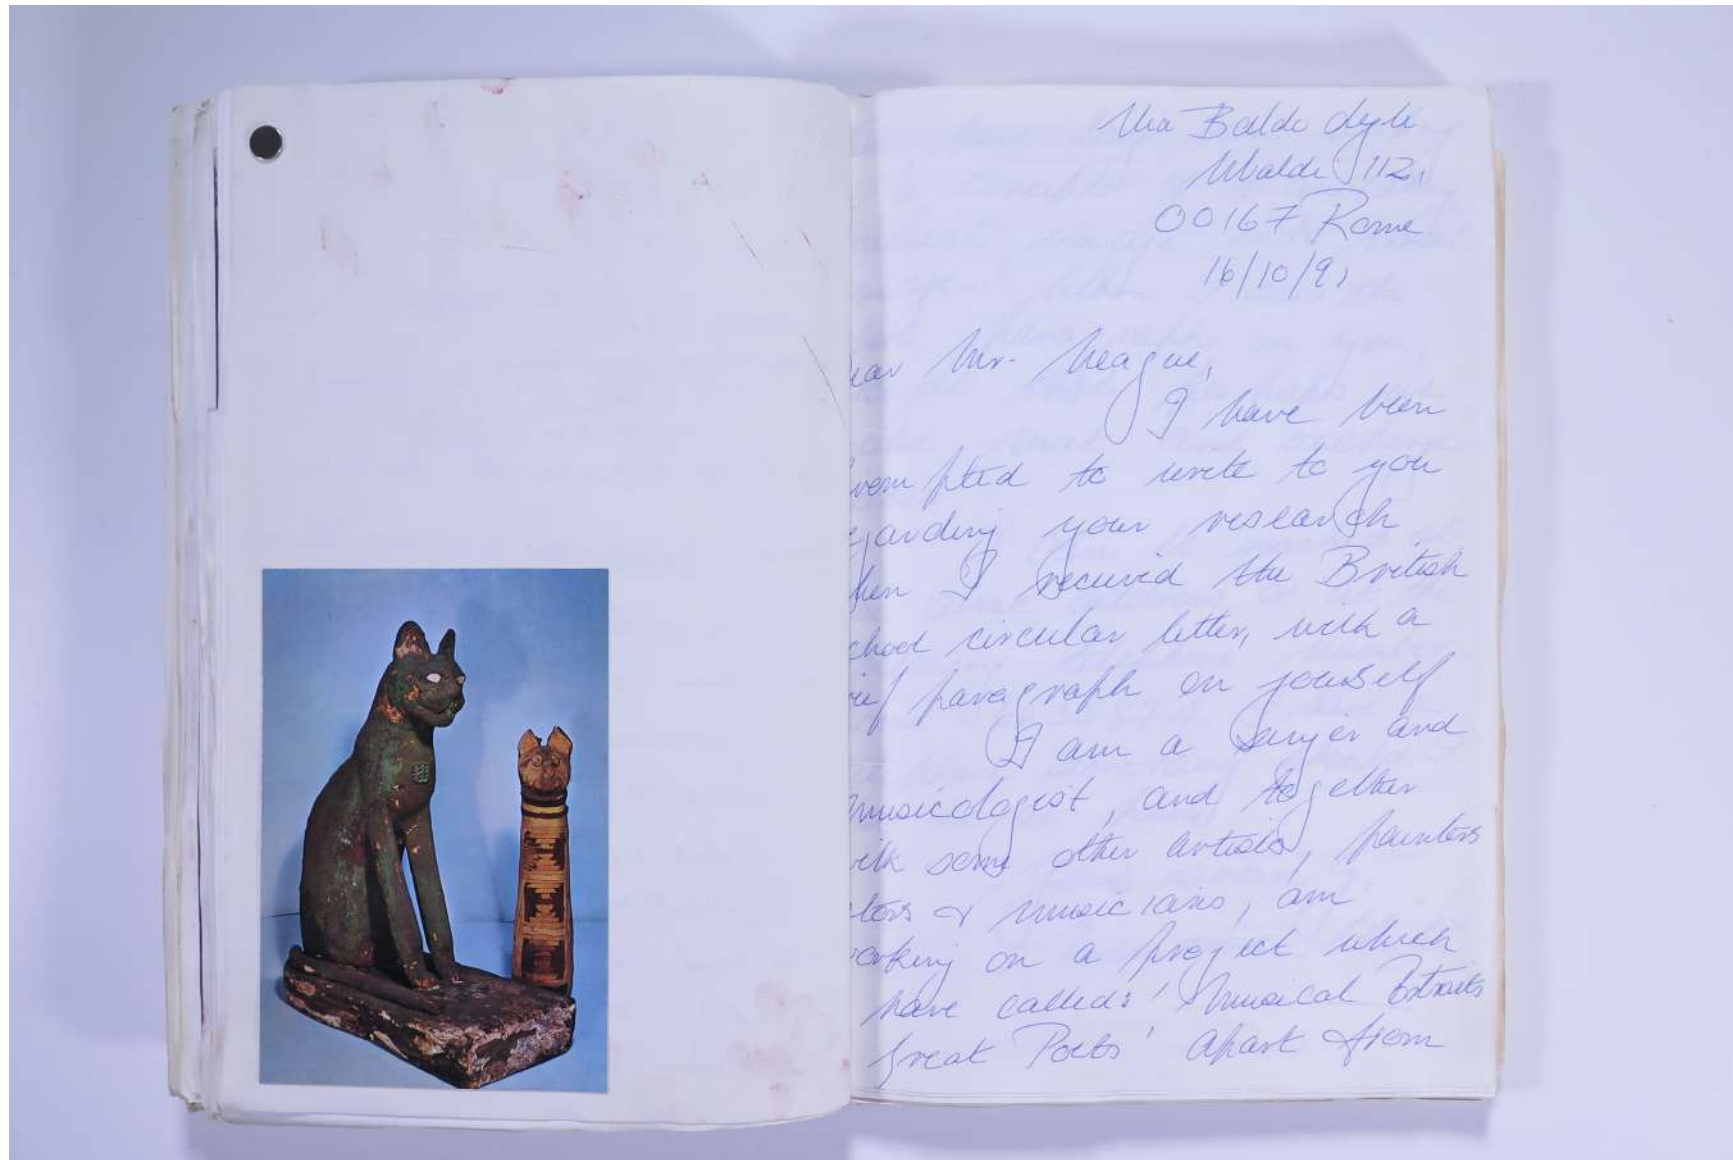 Via Baldo degli
Ubaldi 112,
00167 Rome
16/10/91
ear Mr. Neague,
I have been
rompted to write to you
egarding your research
hen I received the British
chool circular letter, with a
rief paragraph on yourself
I am a singer and
musicologist, and together
with some other artists, painters
ctors & musicians, am
orking on a project which
have called: 'Musical Portraits
great Poets' apart from